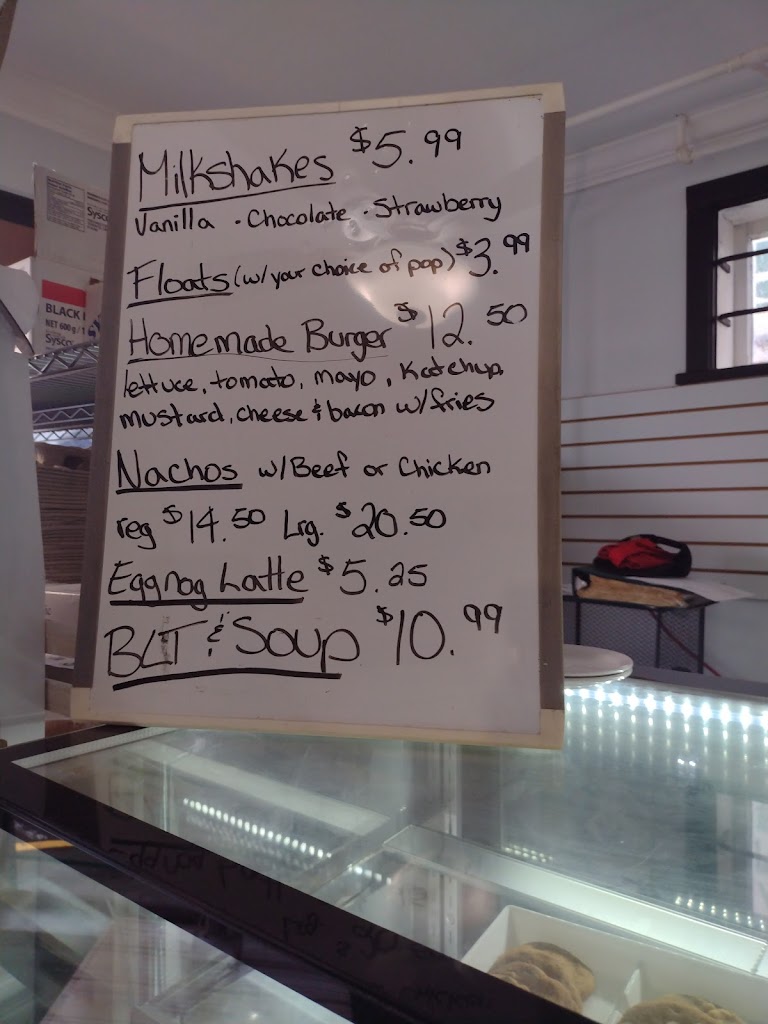 Milkshakes $5.99
Vanilla · Chocolate · Strawberry
Floats (w/your choice of pop) $3.99
Homemade Burger $12.50
lettuce, tomato, mayo, Ketchup,
mustard, cheese & bacon w/fries
Nachos w/Beef or Chicken
reg $14.50 Lrg. $20.50
Eggnog Latte $5.25
BLT & Soup $10.99
Sysco
BLACK
NET 600g/1
Sysco